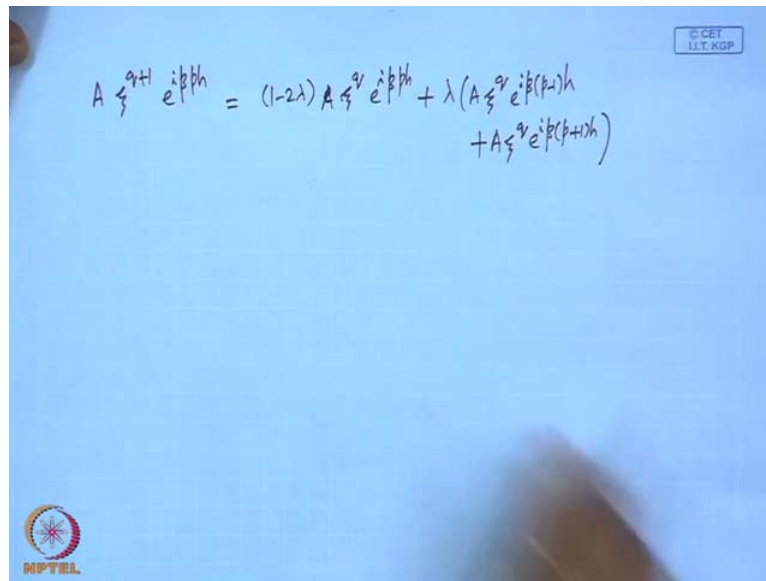 © CET
I.I.T. KGP
A ξ^{q+1} e^{iβph} = (1-2λ) A ξ^q e^{iβph} + λ(A ξ^q e^{iβ(p-1)h}
+ A ξ^q e^{iβ(p+1)h})
NPTEL